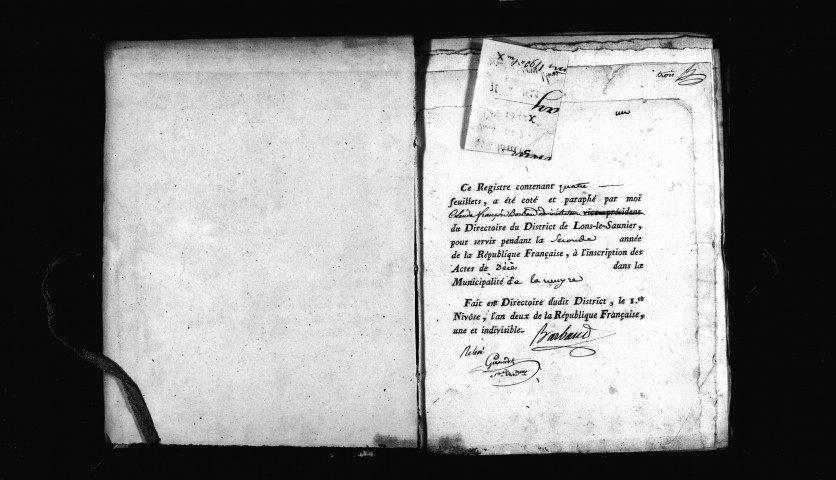 trois
un
Ce Registre contenant quatre
feuillets, a été coté et paraphé par moi
Claude françois Barbaud administrateur vice-président
du Directoire du District de Lons-le-Saunier,
pour servir pendant la Seconde année
de la République Française, à l'inscription des
Actes de Décès dans la
Municipalité de la muyre
Fait en Directoire dudit District, le 1.er
Nivôse, l'an deux de la République Française,
une et indivisible.
Barbaud